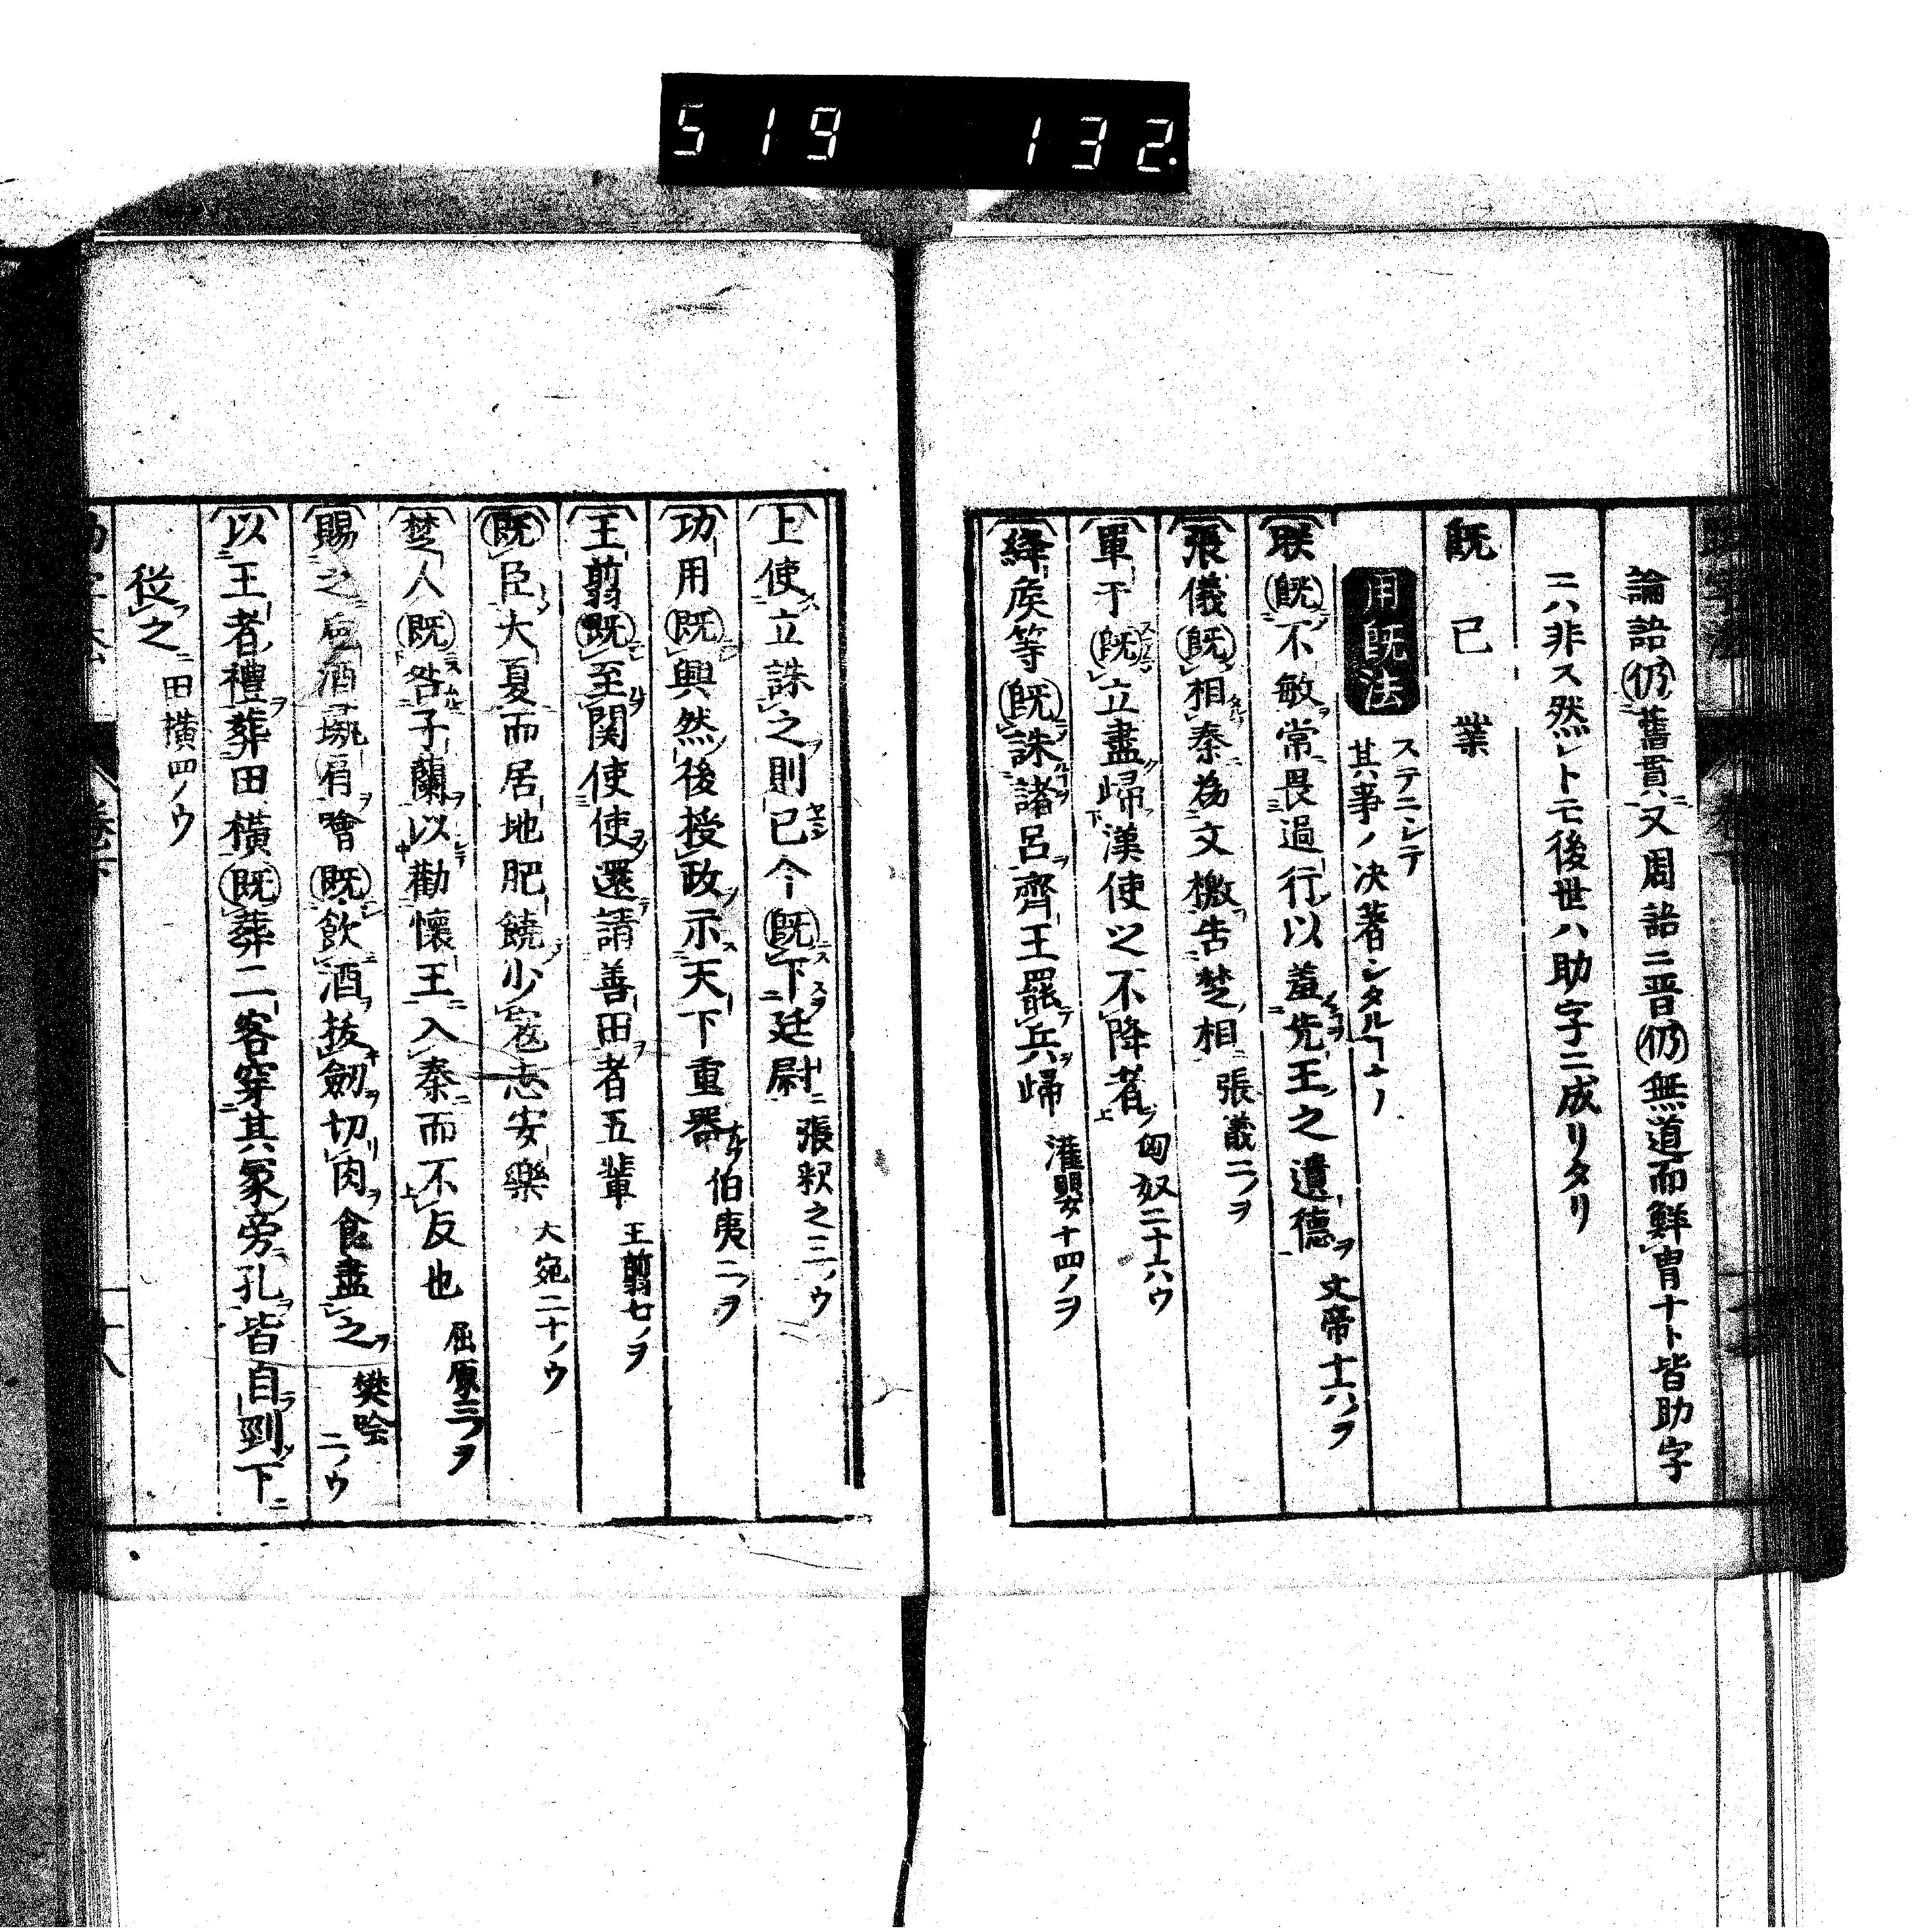 519 132
論語仍舊貫又周語ニ晋仍無道而鮮冑ナト皆助字
ニハ非ス然レトモ後世ハ助字ニ成リタリ
既 已 業
用既法 ステニシテ
其事ノ决著シタルヿナリ
朕既不敏常畏過行以羞先王之遺德 文帝十六ノヲ
張儀既相秦為文檄告楚相 張儀二ノヲ
單于既立盡歸漢使之不降者 匈奴二十六ウ
絳矦等既誅諸呂齊王罷兵歸 灌嬰十四ノヲ
上使立誅之則已今既下廷尉 張釈之三ノウ
功用既興然後授政示天下重器 伯夷二ノヲ
王翦既至関使使還請善田者五輩 王翦七ノヲ
既臣大夏而居地肥饒少寇志安樂 大宛二十ノウ
楚人既咎子蘭以勸懷王入秦而不反也 屈原三ノヲ
賜之卮酒彘肩噲既飲酒拔劒切肉食盡之 樊噲二ノウ
以王者禮葬田橫既葬二客穿其冢旁孔皆自剄下
從之 田橫四ノウ